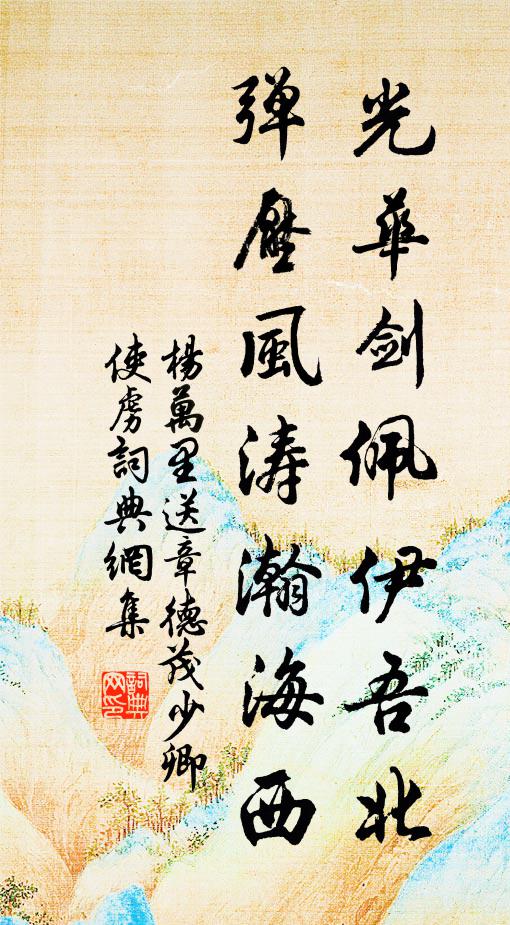 光華劍佩伊吾北
弹壓風涛瀚海西
楊萬里送章德茂少卿
使虜詞典網集
詞典網印